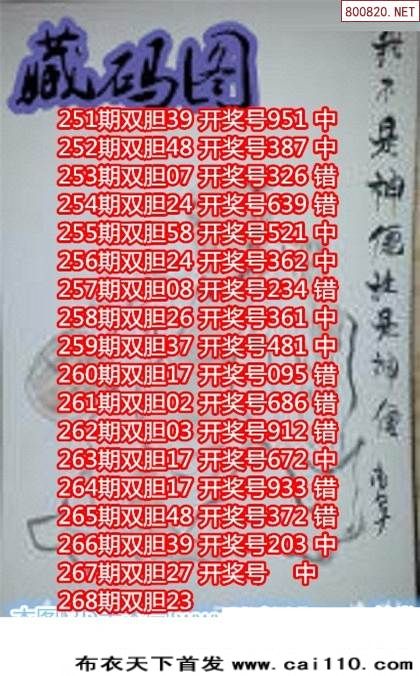 800820.NET
藏码图
251期双胆39 开奖号951 中
252期双胆48 开奖号387 中
253期双胆07 开奖号326 错
254期双胆24 开奖号639 错
255期双胆58 开奖号521 中
256期双胆24 开奖号362 中
257期双胆08 开奖号234 错
258期双胆26 开奖号361 中
259期双胆37 开奖号481 中
260期双胆17 开奖号095 错
261期双胆02 开奖号686 错
262期双胆03 开奖号912 错
263期双胆17 开奖号672 中
264期双胆17 开奖号933 错
265期双胆48 开奖号372 错
266期双胆39 开奖号203 中
267期双胆27 开奖号 中
268期双胆23
我不是神仙胜是神仙
布衣天下首发 www.cai110.com